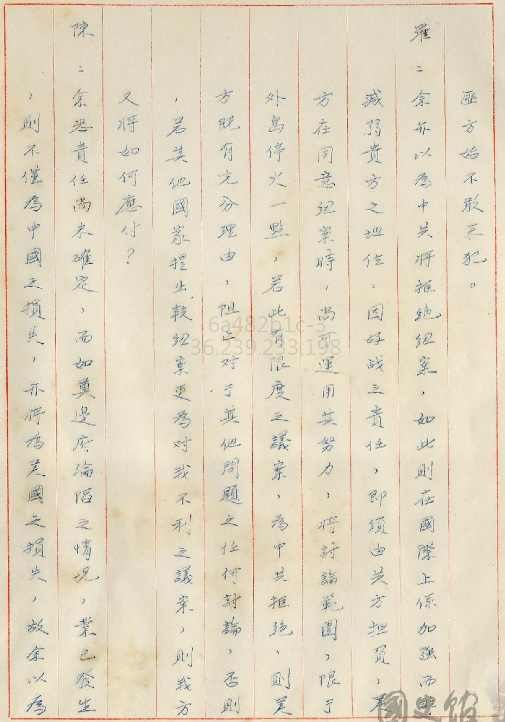 匪方始不敢來犯。
羅：余亦以為中共將拒絕紐案，如此則在國際上係加強而非
減弱貴方之地位，因好战之責任，即須由共方担負，美
方在同意紐案時，尚可運用其努力，將討論範圍，限于
外島停火一點，若此有限度之議案，為中共拒絕，則美
方既有充分理由，阻止对于其他問題之任何討論，否則
，若其他國家提出較紐案更為对我不利之議案，則我方
又將如何應付？
陳：余恐責任尚未確定，而如奠邊府淪陷之情况，業已發生
，則不僅為中國之損失，亦將為美國之損失，故余以為
6a482b1c-3
36.239.233.198
國史館